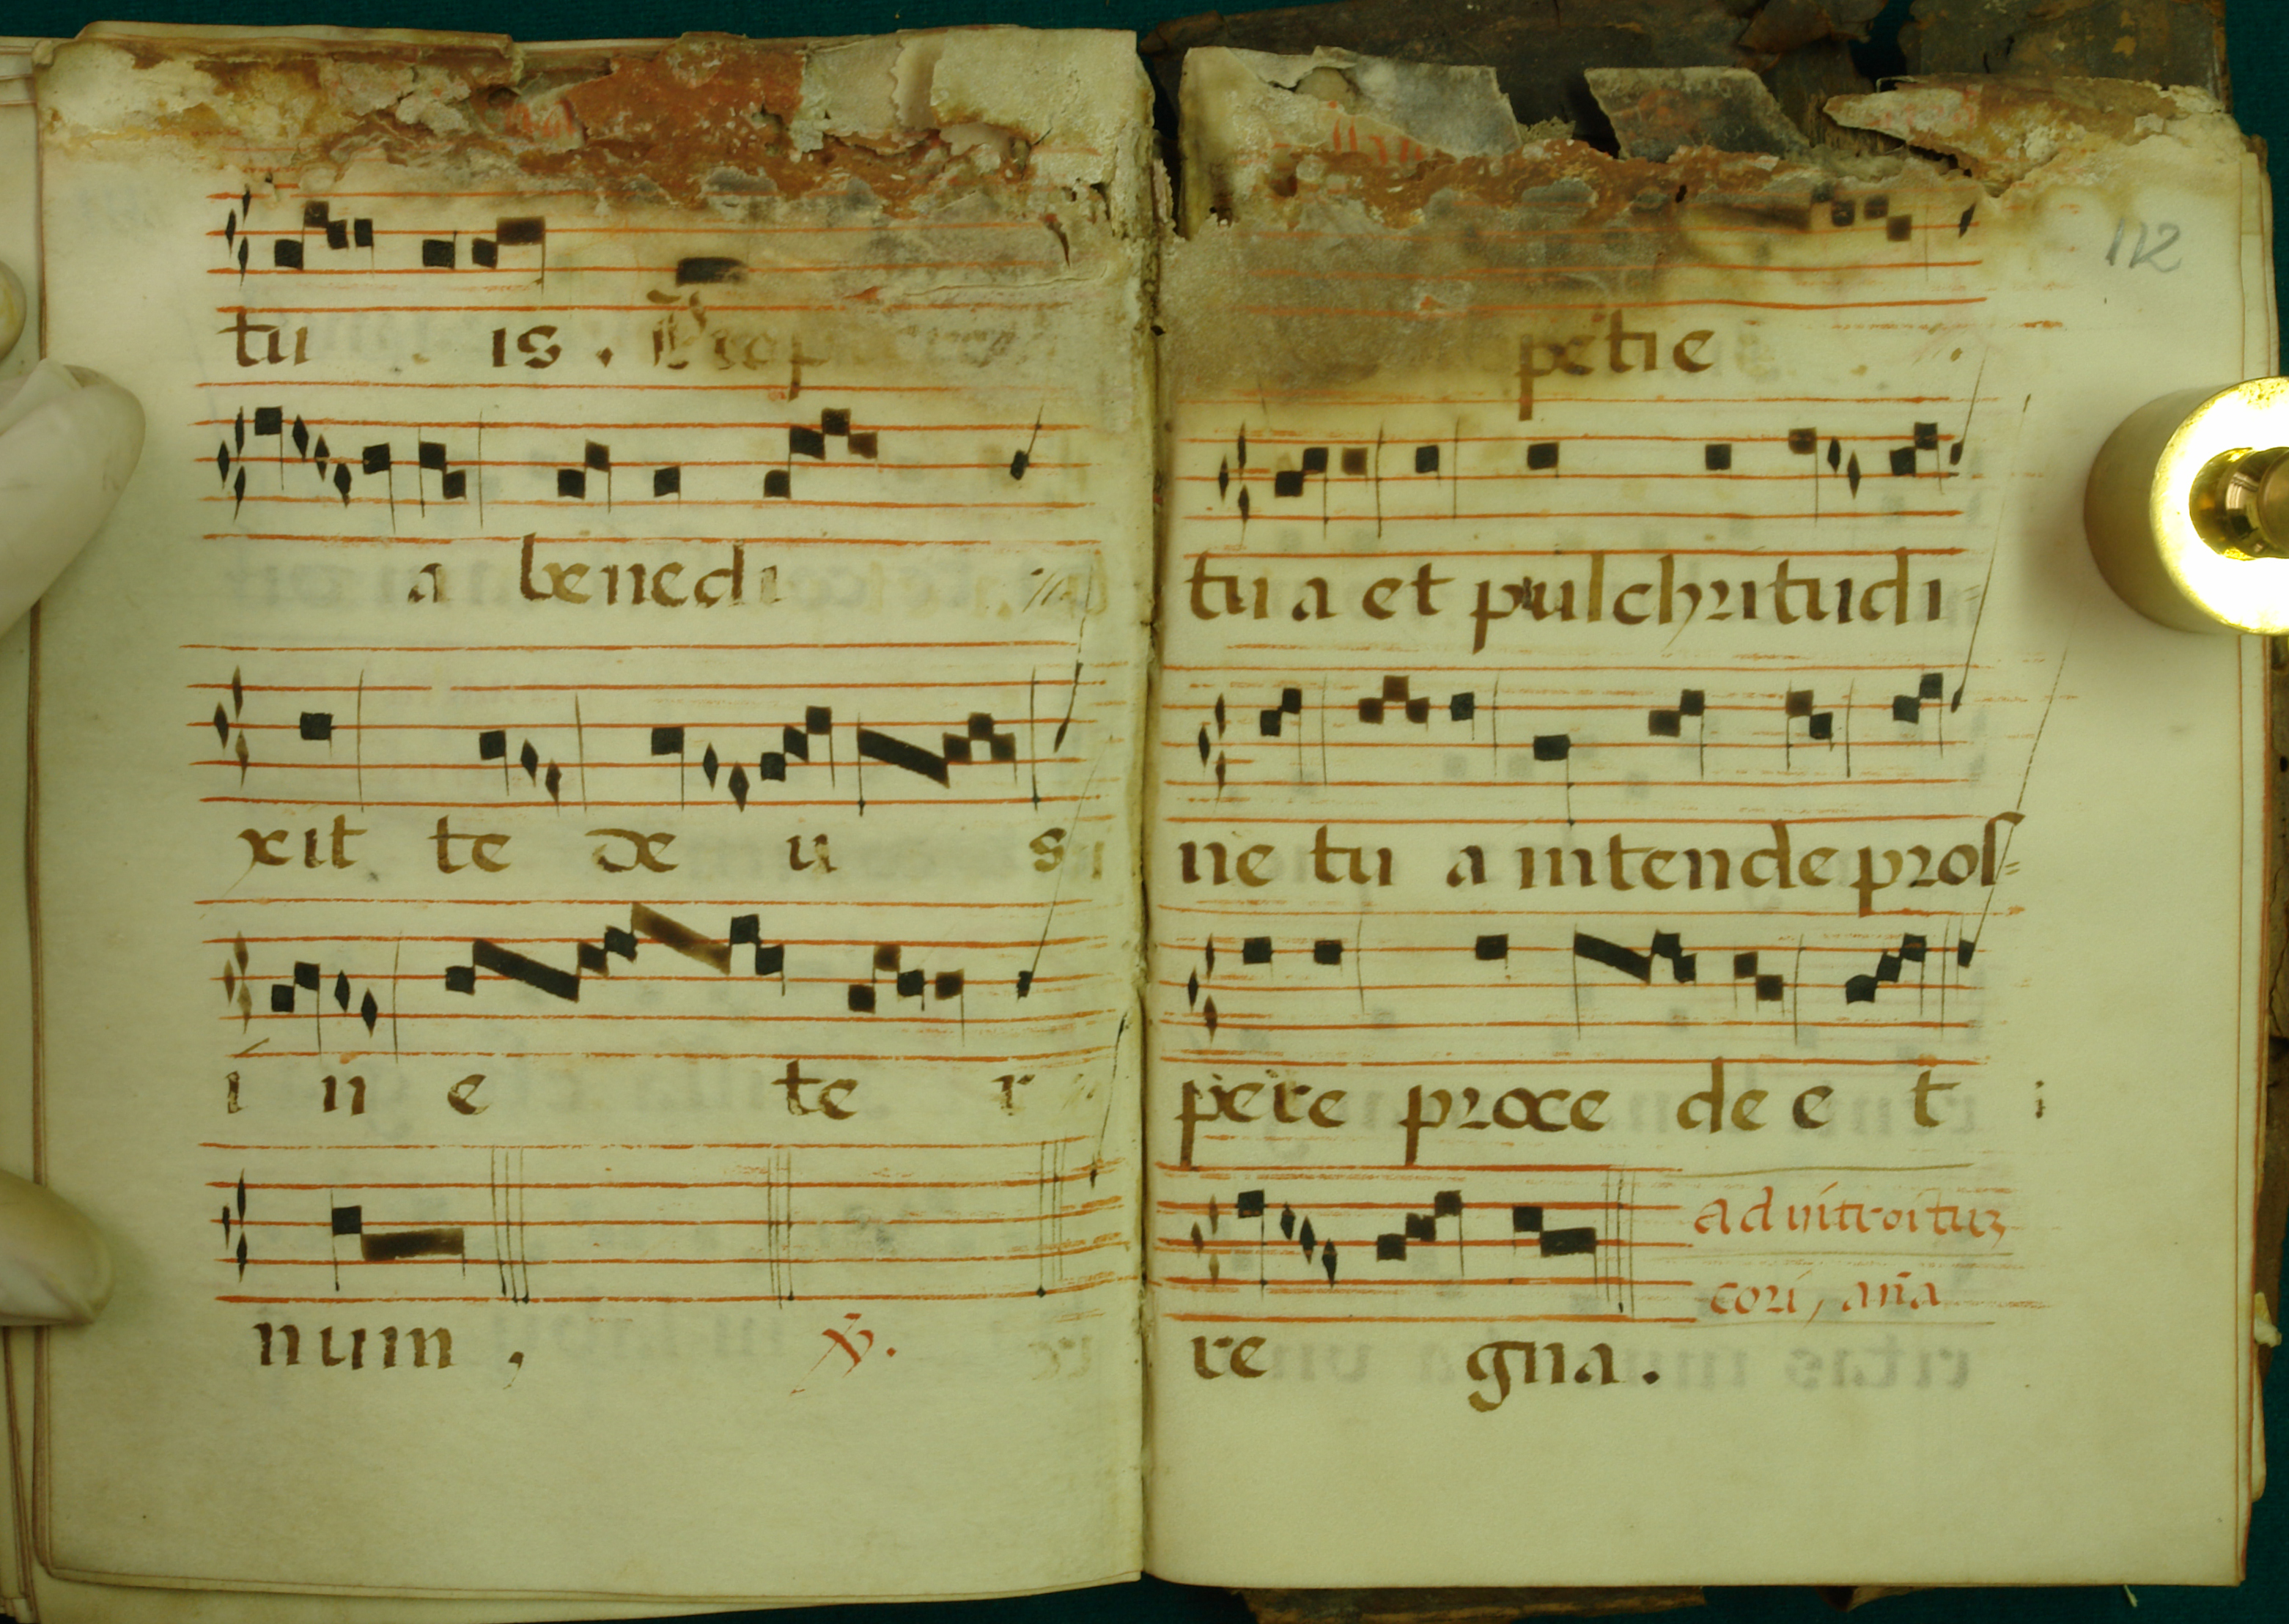 tu is .
a benedi
xit te de u s
i n e te r
num ,
℟.
112
petie
tu a et pulchritudi
ne tu a intende pros=
pere proce de e t
re gna .
ad introituz
cori, ana